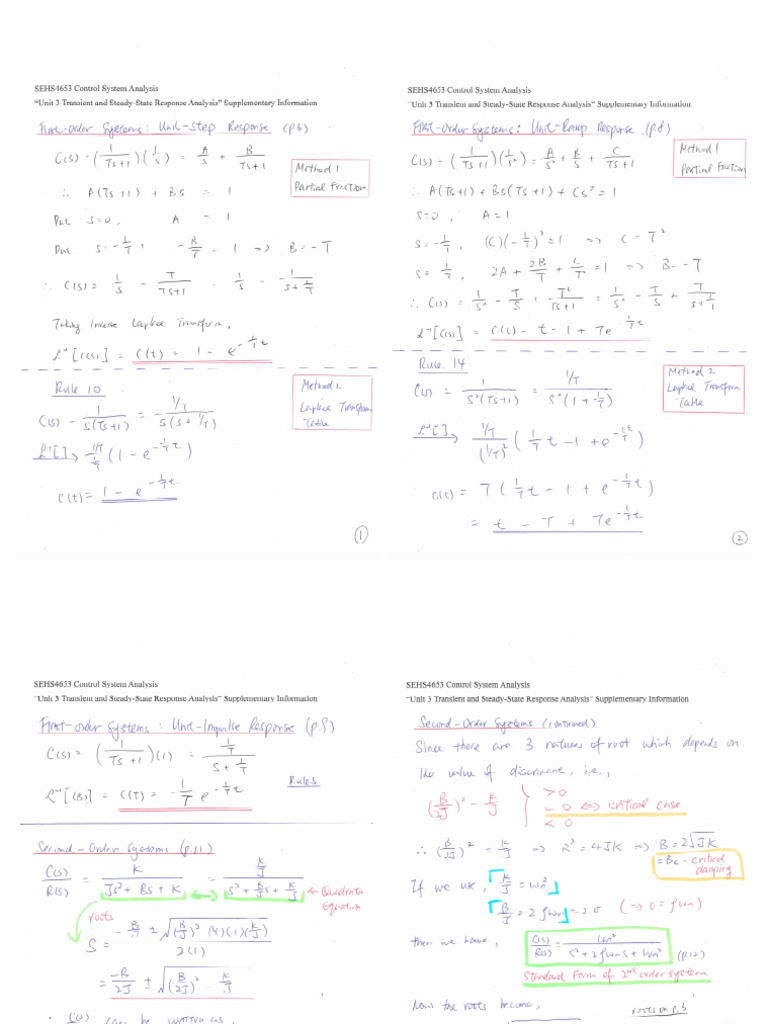 SEHS4653 Control System Analysis
"Unit 3 Transient and Steady-State Response Analysis" Supplementary Information
First-order Systems: Unit-Step Response (p.6)
C(s) = (1/(Ts+1))(1/s) = A/s + B/(Ts+1)
Method 1
Partial Fraction
∴ A(Ts+1) + Bs = 1
Put s=0, A = 1
Put s=-1/T, -B/T = 1 => B = -T
∴ C(s) = 1/s - T/(Ts+1) = 1/s - 1/(s+1/T)
Taking Inverse Laplace Transform,
ℒ⁻¹[C(s)] = C(t) = 1 - e^(-1/T t)
Rule 10
Method 2
Laplace Transform
Table
C(s) = 1/(s(Ts+1)) = (1/T)/(s(s+1/T))
ℒ⁻¹[ ] => (1/T)/(1/T) (1 - e^(-1/T t))
C(t) = 1 - e^(-1/T t)
1
SEHS4653 Control System Analysis
"Unit 3 Transient and Steady-State Response Analysis" Supplementary Information
First-order Systems: Unit-Ramp Response (p.8)
Method 1
Partial Fraction
C(s) = (1/(Ts+1))(1/s²) = A/s² + B/s + C/(Ts+1)
∴ A(Ts+1) + Bs(Ts+1) + Cs² = 1
s=0, A=1
s=-1/T, (C)(-1/T)²=1 => C = T²
s=1/T, 2A + 2B/T + C/T² = 1 => B = -T
∴ C(s) = 1/s² - T/s + T²/(Ts+1) = 1/s² - T/s + T/(s+1/T)
ℒ⁻¹[C(s)] = C(t) = t - T + Te^(-1/T t)
Rule 14
Method 2
Laplace Transform
Table
C(s) = 1/(s²(Ts+1)) = (1/T)/(s²(1+1/T))
ℒ⁻¹[ ] => (1/T)/(1/T)² (1/T t - 1 + e^(-1/T t))
C(t) = T(1/T t - 1 + e^(-1/T t))
= t - T + Te^(-1/T t)
2
SEHS4653 Control System Analysis
"Unit 3 Transient and Steady-State Response Analysis" Supplementary Information
First-order Systems: Unit-Impulse Response (p.9)
C(s) = (1/(Ts+1))(1) = (1/T)/(s+1/T)
ℒ⁻¹[C(s)] = C(t) = 1/T e^(-1/T t)
Second-Order Systems (p.11)
C(s)/R(s) = K/(Js²+Bs+K) = (K/J)/(s²+B/J s+K/J)
← Quadratic
Equation
roots
s = (-B/J ± √((B/J)² - (4)(1)(K/J)))/2(1)
= -B/2J ± √((B/2J)² - K/J)
∴ C(s) can be written as,
SEHS4653 Control System Analysis
"Unit 3 Transient and Steady-State Response Analysis" Supplementary Information
Second-Order Systems (continued)
Since there are 3 natures of root which depends on
the value of discriminent, i.e.,
(B/2J)² - K/J } >0
= 0 <=> critical case
< 0
∴ (B/2J)² = K/J => B² = 4JK => B = 2√JK
= Bc - critical
damping
If we use, K/J = ωn²
B/J = 2ζωn = 2σ (=> σ = ζωn)
then we have, C(s)/R(s) = ωn²/(s²+2ζωns+ωn²) (p.12)
Standard Form of 2nd order system
Now the roots become,
roots on p.3